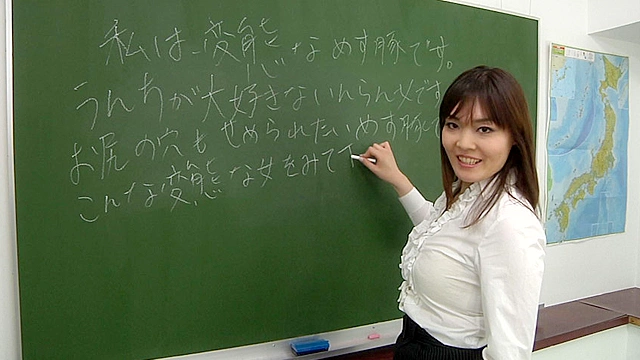 私は、変態なめす豚です。
うんちが大好きないんらん女です
お尻の穴もせめられたいめす豚で
こんな変態な女をみて